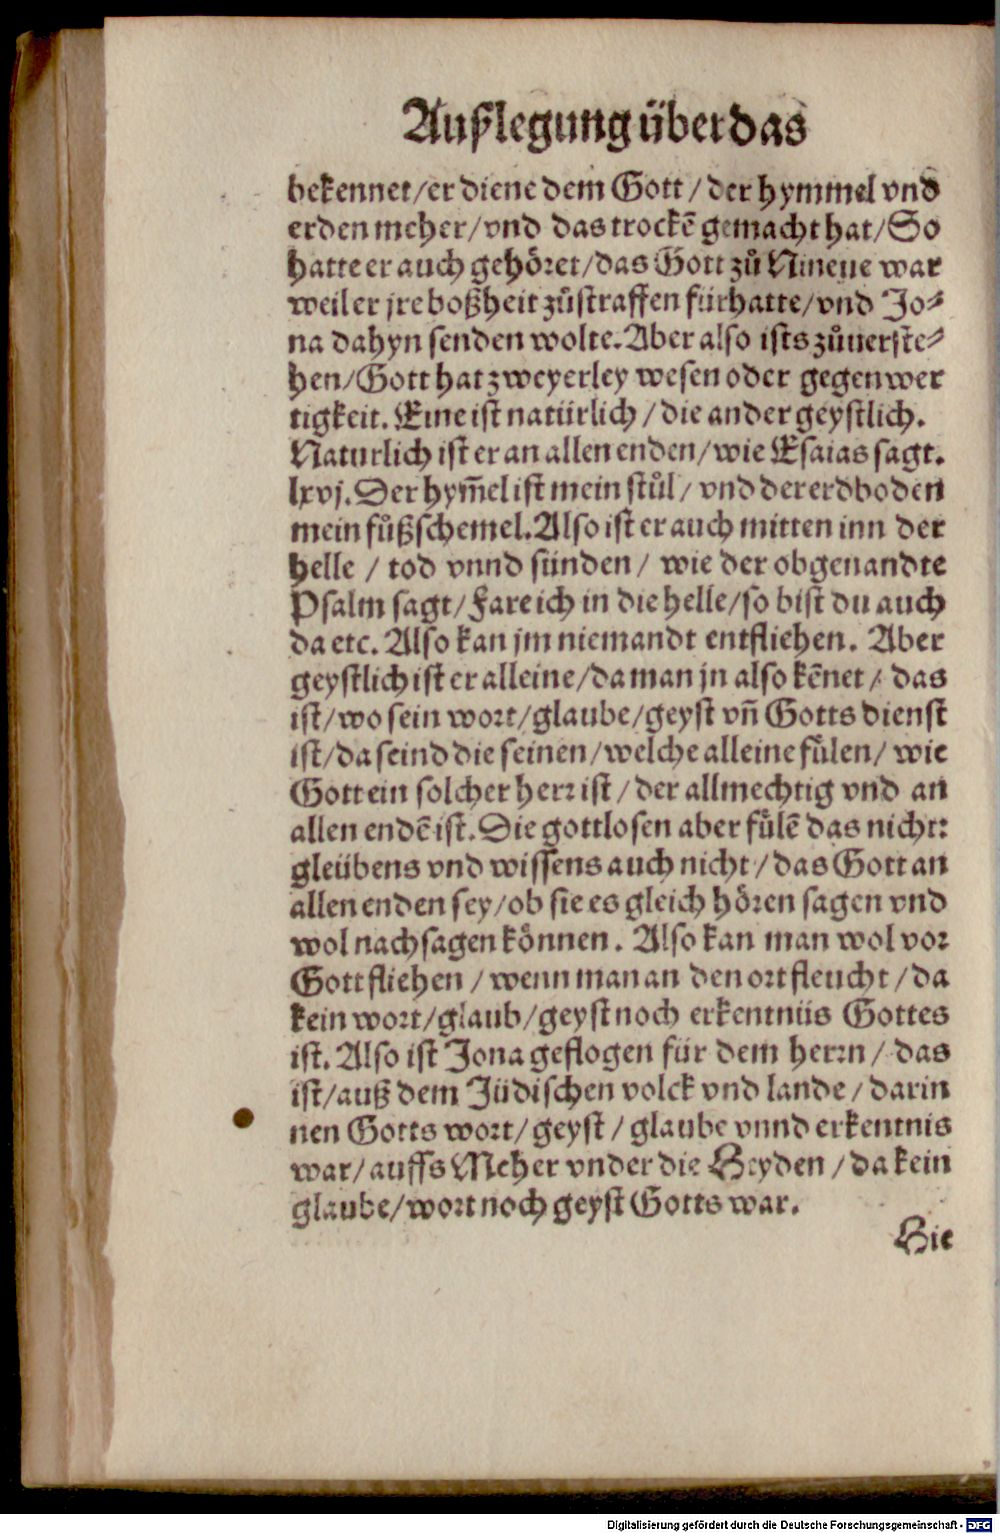 Außlegung über das
bekennet/er diene dem Gott/der hymmel vnd
erden meher/vnd das trockẽ gemacht hat/So
hatte er auch gehöret/das Gott zů Nineue war
weil er jre boßheit zůstraffen fürhatte/vnd Jo-
na dahyn senden wolte. Aber also ists zůuerste-
hen/Gott hat zweyerley wesen oder gegenwer
tigkeit. Eine ist natürlich/die ander geystlich.
Naturlich ist er an allen enden/wie Esaias sagt.
lxvj. Der hym̃el ist mein stůl/vnd der erdboden
mein fůßschemel. Also ist er auch mitten inn der
helle/tod vnnd sünden/wie der obgenandte
Psalm sagt/Fare ich in die helle/so bist du auch
da etc. Also kan jm niemandt entfliehen. Aber
geystlich ist er alleine/da man jn also kẽnet/das
ist/wo sein wort/glaube/geyst vñ Gotts dienst
ist/da seind die seinen/welche alleine fůlen/wie
Gott ein solcher herr ist/der allmechtig vnd an
allen endẽ ist. Die gottlosen aber fůlẽ das nicht:
gleübens vnd wissens auch nicht/das Gott an
allen enden sey/ob sie es gleich hören sagen vnd
wol nachsagen können. Also kan man wol vor
Gott fliehen/wenn man an den ort fleucht/da
kein wort/glaub/geyst noch erkentniis Gottes
ist. Also ist Jona geflogen für dem herrn/das
ist/auß dem Jüdischen volck vnd lande/darin
nen Gotts wort/geyst/glaube vnnd erkentnis
war/auffs Meher vnder die Heyden/da kein
glaube/wort noch geyst Gotts war.
Hie
Digitalisierung gefördert durch die Deutsche Forschungsgemeinschaft - DFG